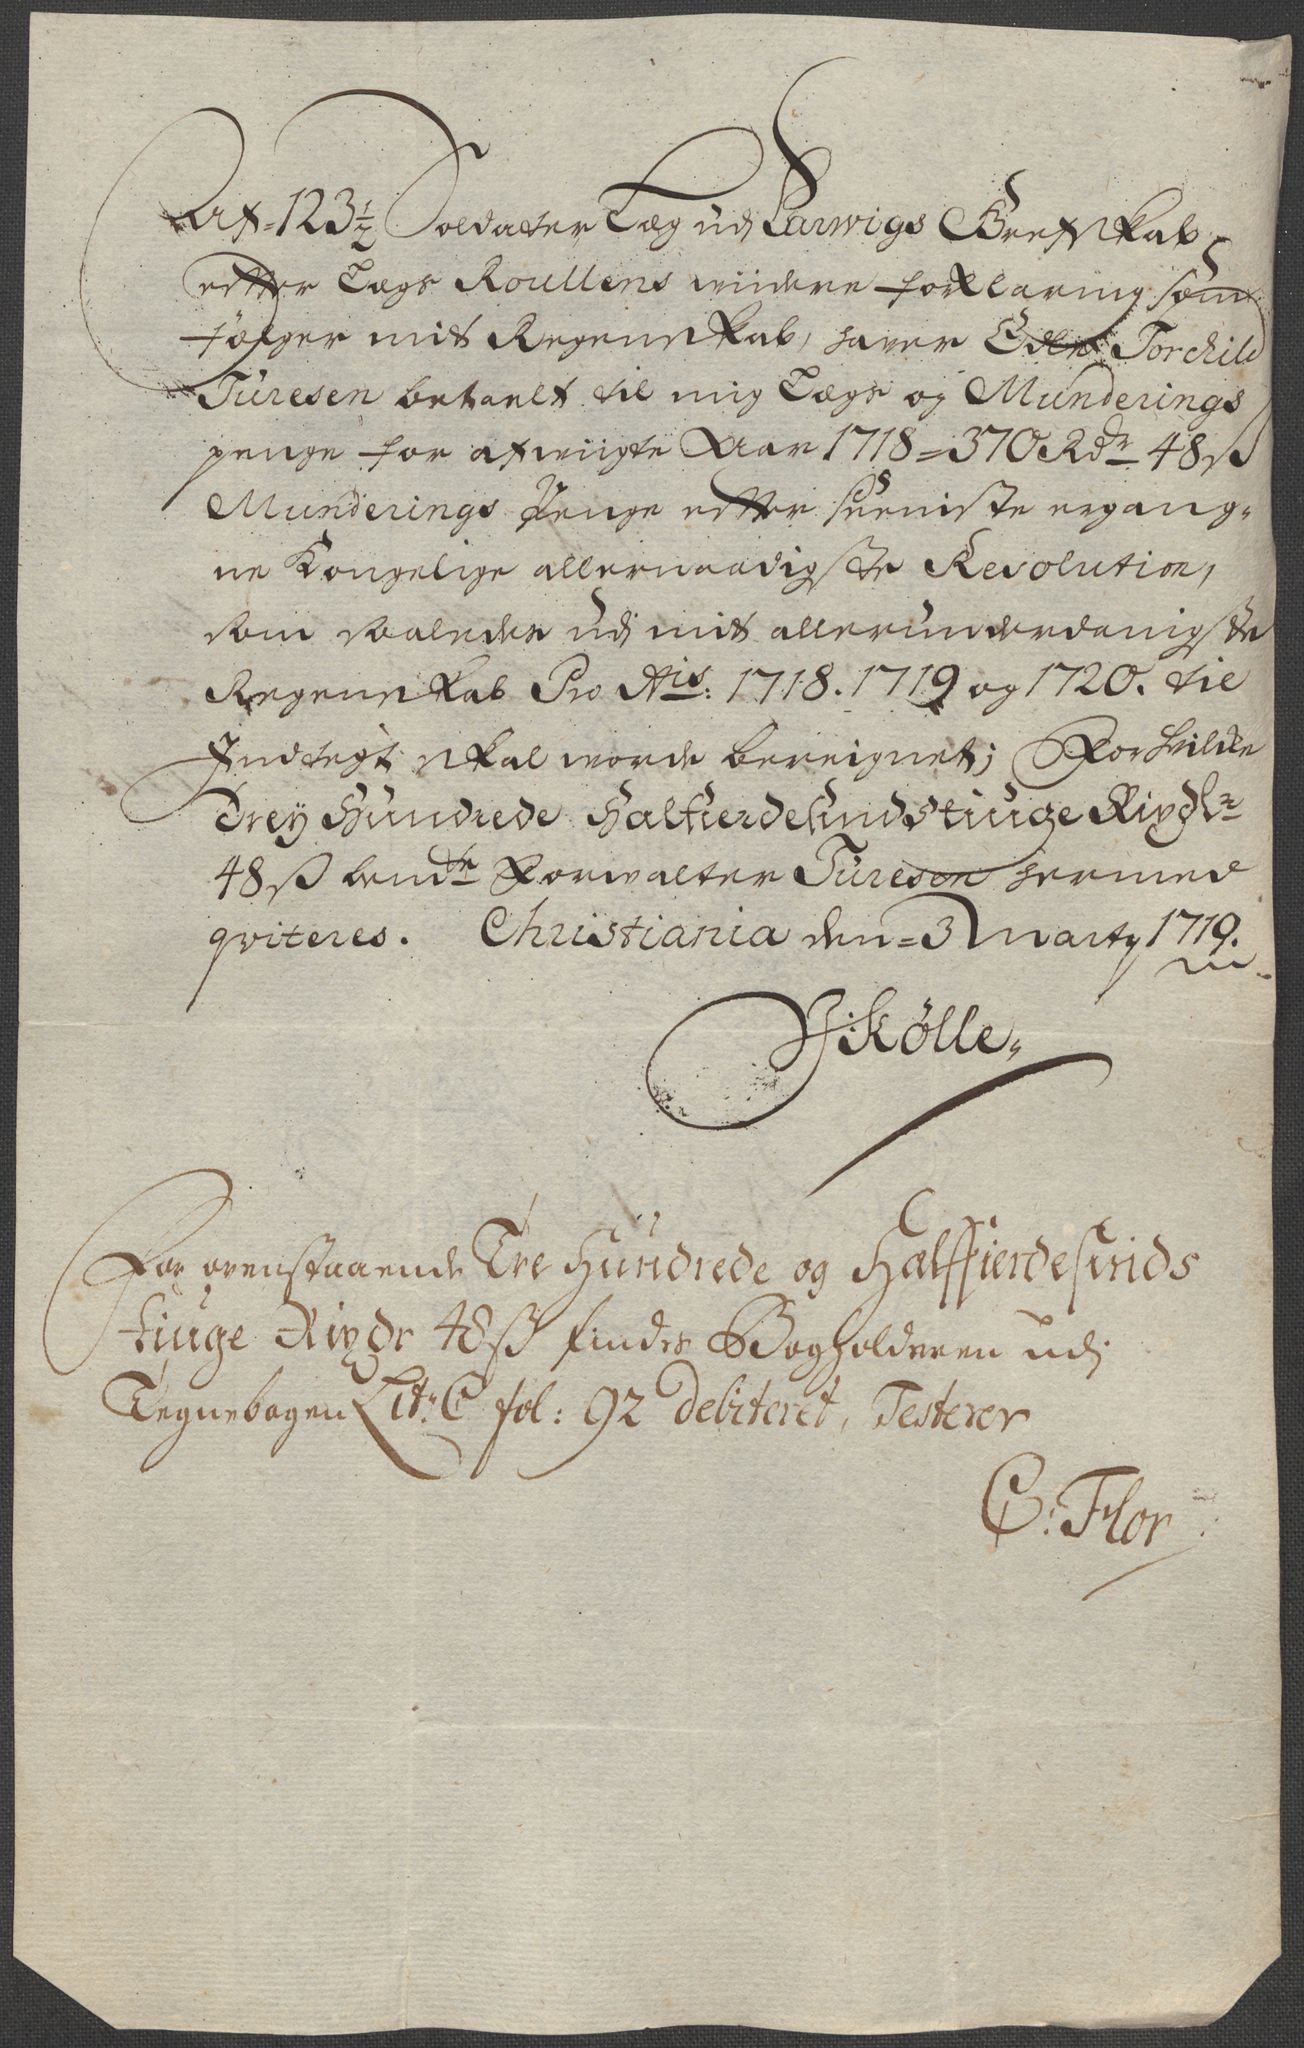 Af 123½ Soldater Læg udj Larwigs Grefskab
efter Lægs Roullens widere forklaring som
følger mit Regenskab, haver Edle Torchild
Turesen betaelt til mig Lægs og Munderings
penge for afwigte Aar 1718 = 370 Rdr 48 ß
Munderings Penge efter seeniste ergang-
ne Kongelige allernaadigste Resolution,
som saaledes udj mit allerunderdanigste
Regenskab Pro Ais: 1718. 1719 og 1720. til
Indtegt skal worde bereignet; For hvilke
Trey Hundrede Halfierdesindstiuge Rixdlr
48 ß bemte Forwalter Turesen hermed
qviteres. Christiania den = 3 Marty 1719.
J: Kølle
For ovenstaaende Tre Hundrede og Halffierdesinds
tiuge Rixdr 48 ß findes Bogholderen udj
Tegnebogen Lit: C fol: 92 debiteret, Testerer
C: Flor